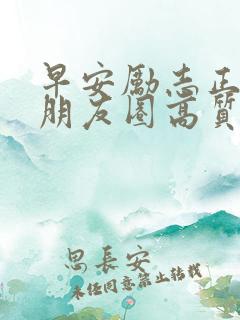 早安励志正
朋友圈高质
思长安
未经同意禁止转载